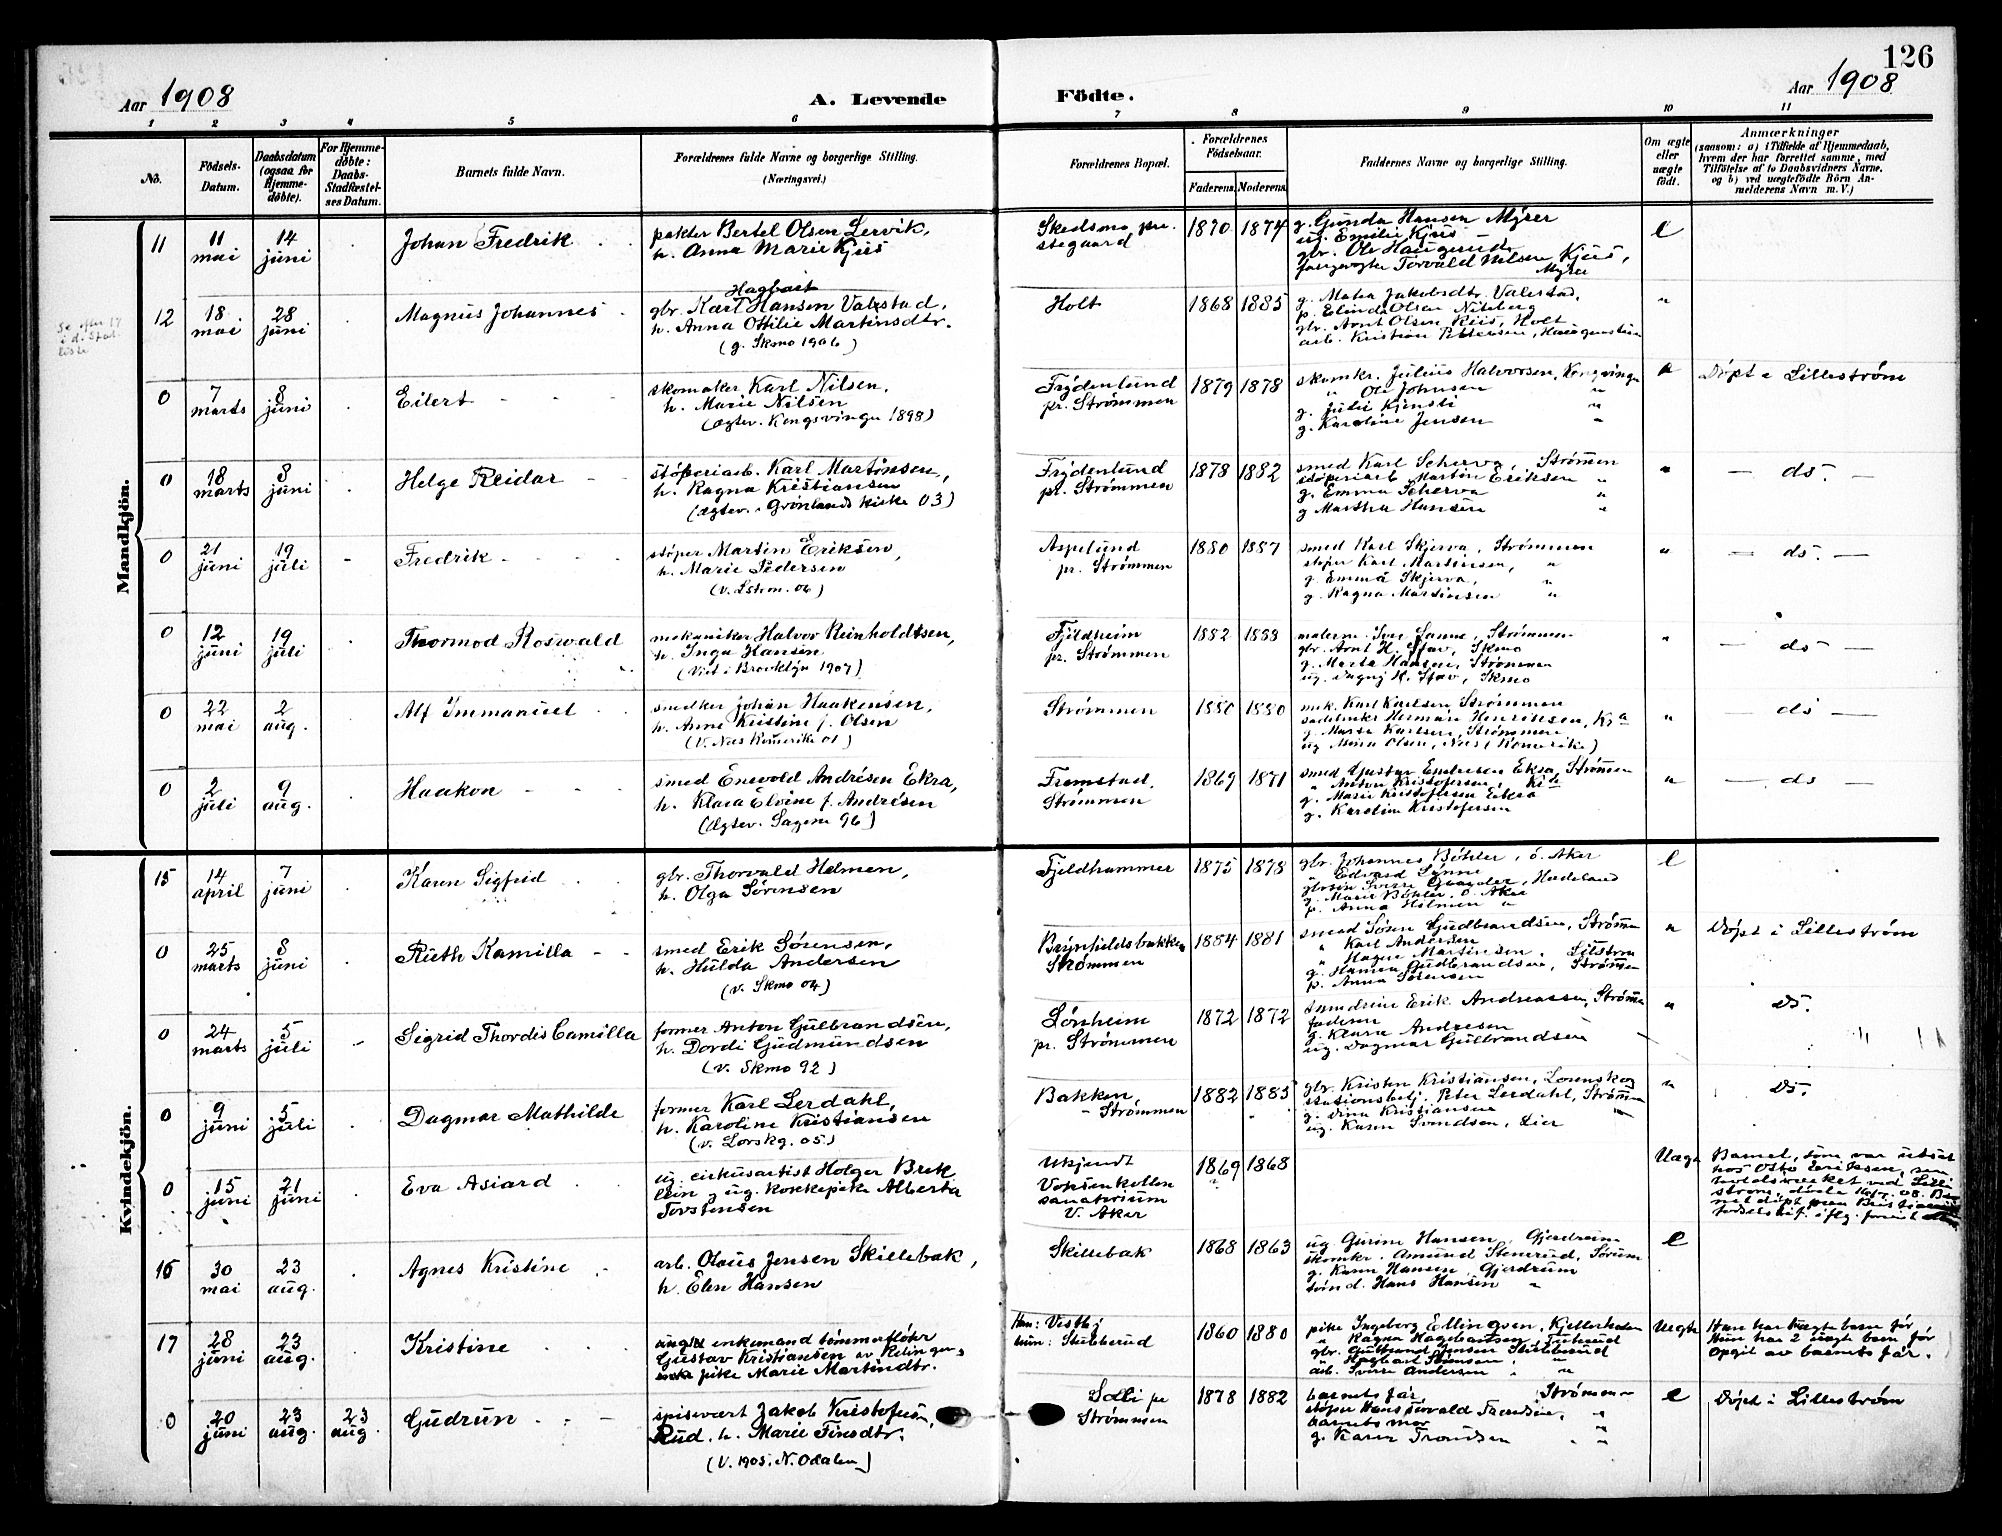 126
Aar 1908
A. Levende
Födte.
Aar 1908
1 2 3 4 5 6 7 8 9 10 11
No.
Födsels-Datum.
Daabsdatum (ogsaa for Hjemmedöbte).
For Hjemmedöbte: Daabs-Stadfæstelses Datum.
Barnets fulde Navn.
Forældrenes fulde Navne og borgerlige Stilling. (Næringsvei.)
Forældrenes Bopæl.
Forældrenes Födselsaar.
Faderens. Moderens.
Faddernes Navne og borgerlige Stilling.
Om ægte eller uægte födt.
Anmærkninger
(saasom: a) i Tilfælde af Hjemmedaab, hvem der har forrettet samme, med Tilföielse af to Daabsvidners Navne, og b) ved uægtefödte Börn Anmelderens Navn m. V.)
Mandkjön.
11 11 mai 14 juni Johan Fredrik
pakter Bertel Olsen Lervik,
h. Anna Marie Kjus
Skedsmo prestegaard 1870 1874
g. Gunda Hansen Myrer
ug. Emilie Kjus
gbr. Ole Haugerud
Torvald Nilsen Kjus,
Myrer
e
12 18 mai 28 juni Magnus Johannes
Hagbart
gbr. Karl Hansen Valstad,
h. Anna Ottilie Martinsdtr.
(g. Skmo 1906)
Holt 1868 1885
g. Maria Jakobsdtr. Valstad,
p. Elinda Olsen Niteberg
gbr. Arnt Olsen Riis, Holt
arb. Kristian Pettersen,
"
0 7 marts 8 juni Eilert
skomaker Karl Nilsen,
h. Marie Nilsen
(ægtev. Kongsvinger 1898)
Frydenlund pr. Strømmen 1879 1878
skomkr. Julius Halvorsen, Kongsvinger
" Ole Johnsen "
g. Julie Kjensli "
g. Karoline Jensen "
" Døpt i Lillestrøm
0 18 marts 8 juni Helge Reidar
støperiarb. Karl Martinsen,
h. Ragna Kristiansen
(ægtev. Grønlands kirke 03)
Frydenlund pr. Strømmen 1878 1882
smed Karl Scherva, Strømmen
støperiarb Martin Eriksen "
g. Emma Scherva "
g Martha Hansen "
" — ds. —
0 21 juni 19 juli Fredrik
støper Martin Eriksen,
h. Marie Pedersen
(v. Lstrøm. 06)
Aspelund pr. Strømmen 1880 1887
smed Karl Skjerva, Strømmen
støper Karl Martinsen, "
g. Emma Skjerva, "
g. Ragna Martinsen "
" — ds. —
0 12 juni 19 juli Thormod Roswald
mekaniker Halvor Reinholdtsen,
h. Inga Hansen
(Viet i Brooklyn 1907)
Fjeldheim pr. Strømmen 1882 1888
malerm. Iver Sanne, Strømmen
gbr. Arnt H. Skmo
g. Marta Hansen, Strømmen
ug. Dagny H. Skmo
" — ds —
0 22 mai 2 aug. Alf Immanuel
smedker Johan Haakensen,
h. Anne Kristine f. Olsen
(V. Nes Romerike 01)
Strømmen 1880 1880
mek. Karl Karlsen, Strømmen
Herman Henriksen, Kra
g. Marie Karlsen, Strømmen
ug Mina Olsen, Nes (Romerike)
" — ds —
0 2 juli 9 aug. Haakon
smed Enevold Andresen Ekra,
h. Klara Elvine f. Andresen
(Ægtev. Sagene 96)
Fremstad, Strømmen 1869 1871
smed Gustav Endresen Ekra, Strømmen
" Anton Kristofersen Kra
g. Marie Kristofersen Ekra
g. Karoline Kristofersen
" — ds —
Kvindekjön.
15 14 april 7 juni Karen Sigfrid
gbr. Thorvald Holmen,
h. Olga Sørensen
Fjeldhammer 1875 1878
gbr. Johannes Bøhler, ö. Aker
" Edvard Sanne
Hadeland
g. Marie Bøhler ö. Aker
p. Anna Holmen "
e
0 25 marts 8 juni Ruth Kamilla
smed Erik Sørensen,
h. Hulda Andersen
(v. Skmo 04)
Brynhildsbakken Strømmen 1884 1881
smed Søren Gudbrandsen, Strømmen
" Karl Andersen
" Hagen Martinsen, Lillestrøm
g. Hanna Gudbrandsen, Strømmen
p. Anna Sørensen
" Døpt i Lillestrøm
0 24 marts 5 juli Sigrid Thordis Camilla
former Anton Gulbrandsen,
h. Dordi Gudmundsen
(v. Skmo 92)
Lønheim pr. Strømmen 1872 1872
Erik Andreassen, Strømmen
faderen
g. Klara Andresen
ug. Dagmar Gulbrandsen
" Ds.
0 9 juni 5 juli Dagmar Mathilde
former Karl Lerdahl,
h. Karoline Kristiansen
(v. Lørskg. 05)
Bakken, Strømmen 1882 1885
gbr. Kristen Kristiansen, Lørenskog
stationsbetj. Peter Lerdahl, Strømmen
g. Dina Kristiansen
ug. Karen Svendsen, Lier
" Ds.
0 15 juni 21 juni Eva Asiard
ug. cirkusartist Holger Breklein
og ug. kokkepike Alberta
Torstensen
Ukjendt
Voksenkollen sanatorium
V. Aker
1869 1868
Uægte
Barnet, som var utsat
hos Otto Eriksen,
ved Lillestrøm, døde
16 30 mai 23 aug. Agnes Kristine
arb. Olaus Jensen Skillebæk,
h. Elen Hansen
Skillebæk 1868 1863
ug. Gurine Hansen, Gjerdrum
skomkr. Amund Stensrud, Sørum
g. Karen Hansen, Gjerdrum
tømd. Hans Hansen "
e
17 28 juni 23 aug. Kristine
enkemand tømmerfløter
Gustav Kristiansen av Relingen
pike Marie Martindtr.
Han: Vestby
hun: Stubberud
1860 1880
pike Ingeborg Ellingven, Kjellerholen
" Ragna Hagebartsen,
gbr. Gulbrand Jensen Stubberud
" Hagbart Stensen "
arb. Sverre Andersen "
Uægte
Han har uægte barn før
Hun har 2 uægte barn før
Opgit av barnets far.
0 20 juni 23 aug. 23 aug. Gudrun
spisevært Jakob Kristofersen
Rud, h. Marie Finsdtr.
(V. 1905, N. Odalen)
Solli pr Strømmen 1878 1882
barnets far Strømmen
støper Hans Torvald Trondsen, "
barnets mor "
g. Karen Trondsen "
e Døpt i Lillestrøm